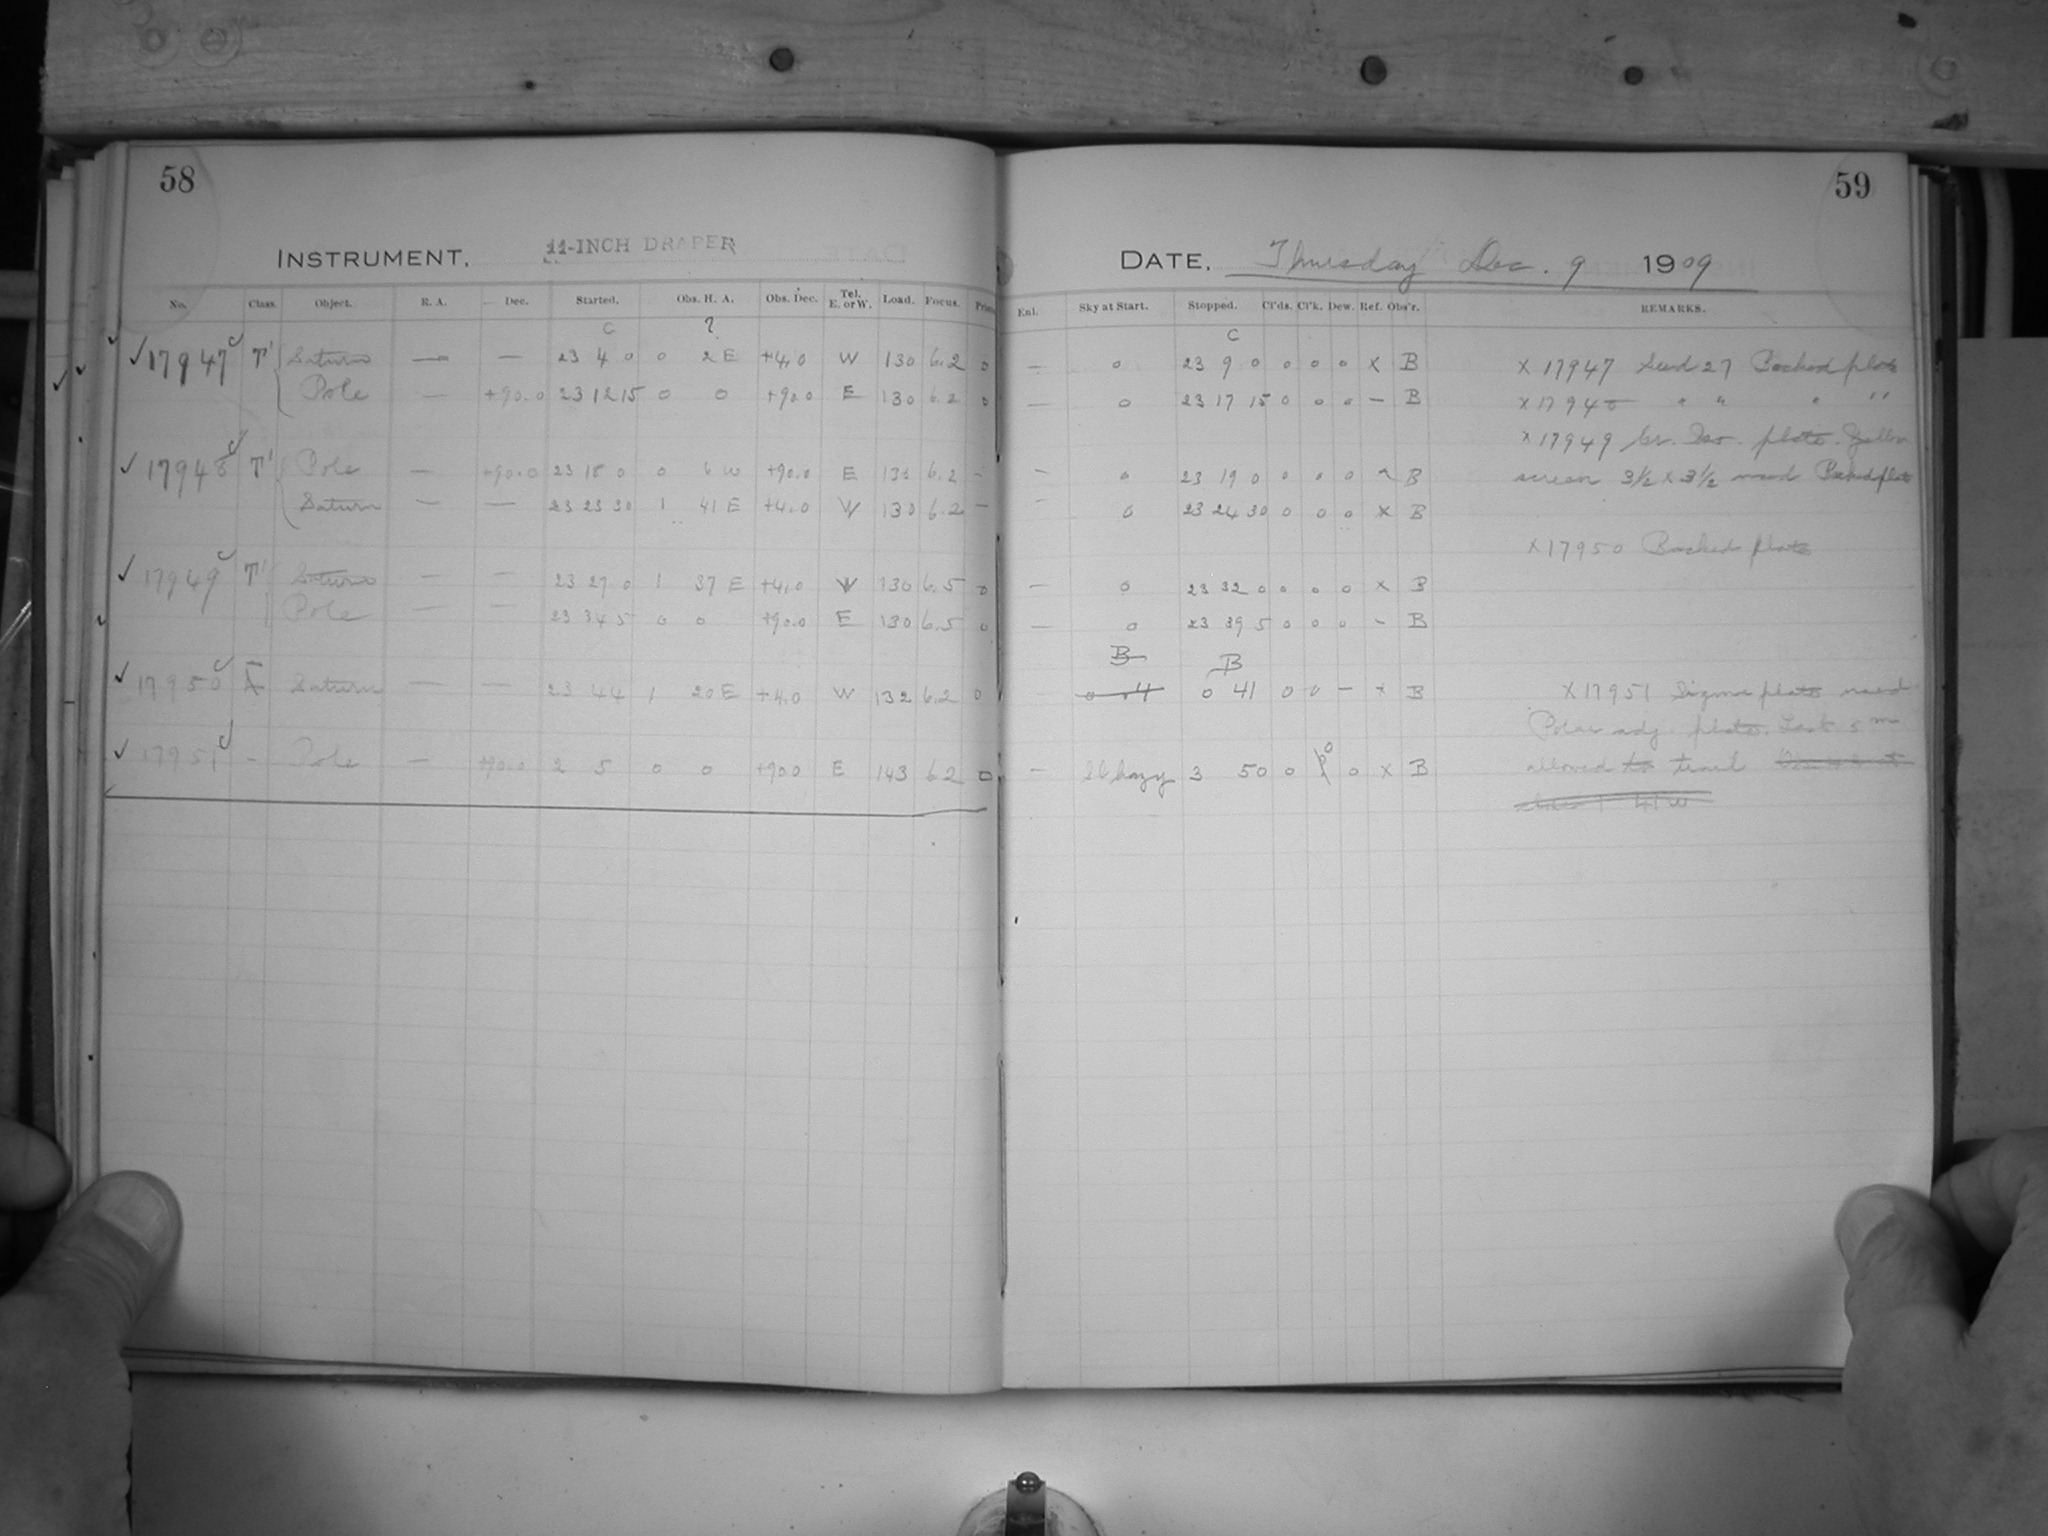 58
INSTRUMENT. 11-INCH DRAPER
No. Class. Object. R. A. Dec. Started. Obs. H. A. Obs. Dec. Tel. E. or W. Load. Focus.
C ?
17947 T' Saturn — — 23 4 0 0 2 E +4.0 W 130 6.2 0
Pole — +90.0 23 12 15 0 0 +90.0 E 130 6.2 0
17948 T' Pole — +90.0 23 18 0 0 6 W +90.0 E 130 6.2 –
Saturn — — 23 23 30 1 41 E +4.0 W 130 6.2 —
17949 T' Saturn — — 23 27 0 1 37 E +4.0 W 130 6.5 0
Pole — — 23 34 5 0 0 +90.0 E 130 6.5 0
17950 Saturn — — 23 44 1 20 E +4.0 W 132 6.2 0
17951 – Pole — +90.0 2 5 0 0 +90.0 E 143 6.2 0
59
DATE. Thursday Dec. 9 1909
Enl. Sky at Start. Stopped. Cl'ds. Cl'k. Dew. Ref. Obs'r. REMARKS.
C
— 0 23 9 0 0 0 0 X B X 17947 Seed 27 Backed plate
— 0 23 17 15 0 0 0 — B X 17948 " " " "
X 17949 Cr. Iso. plate. Yellow
— 0 23 19 0 0 0 0 B screen 3½ x 3½ used Backed plate
– 0 23 24 30 0 0 0 X B
X 17950 Backed plate
— 0 23 32 0 0 0 0 X B
— 0 23 39 5 0 0 0 – B
B B
0 41 0 0 — X B X 17951 Sigma plate used
Polar adj. plate. Last 5 m
— Sl hazy 3 50 0 0 0 X B allowed to trail
1 41 W